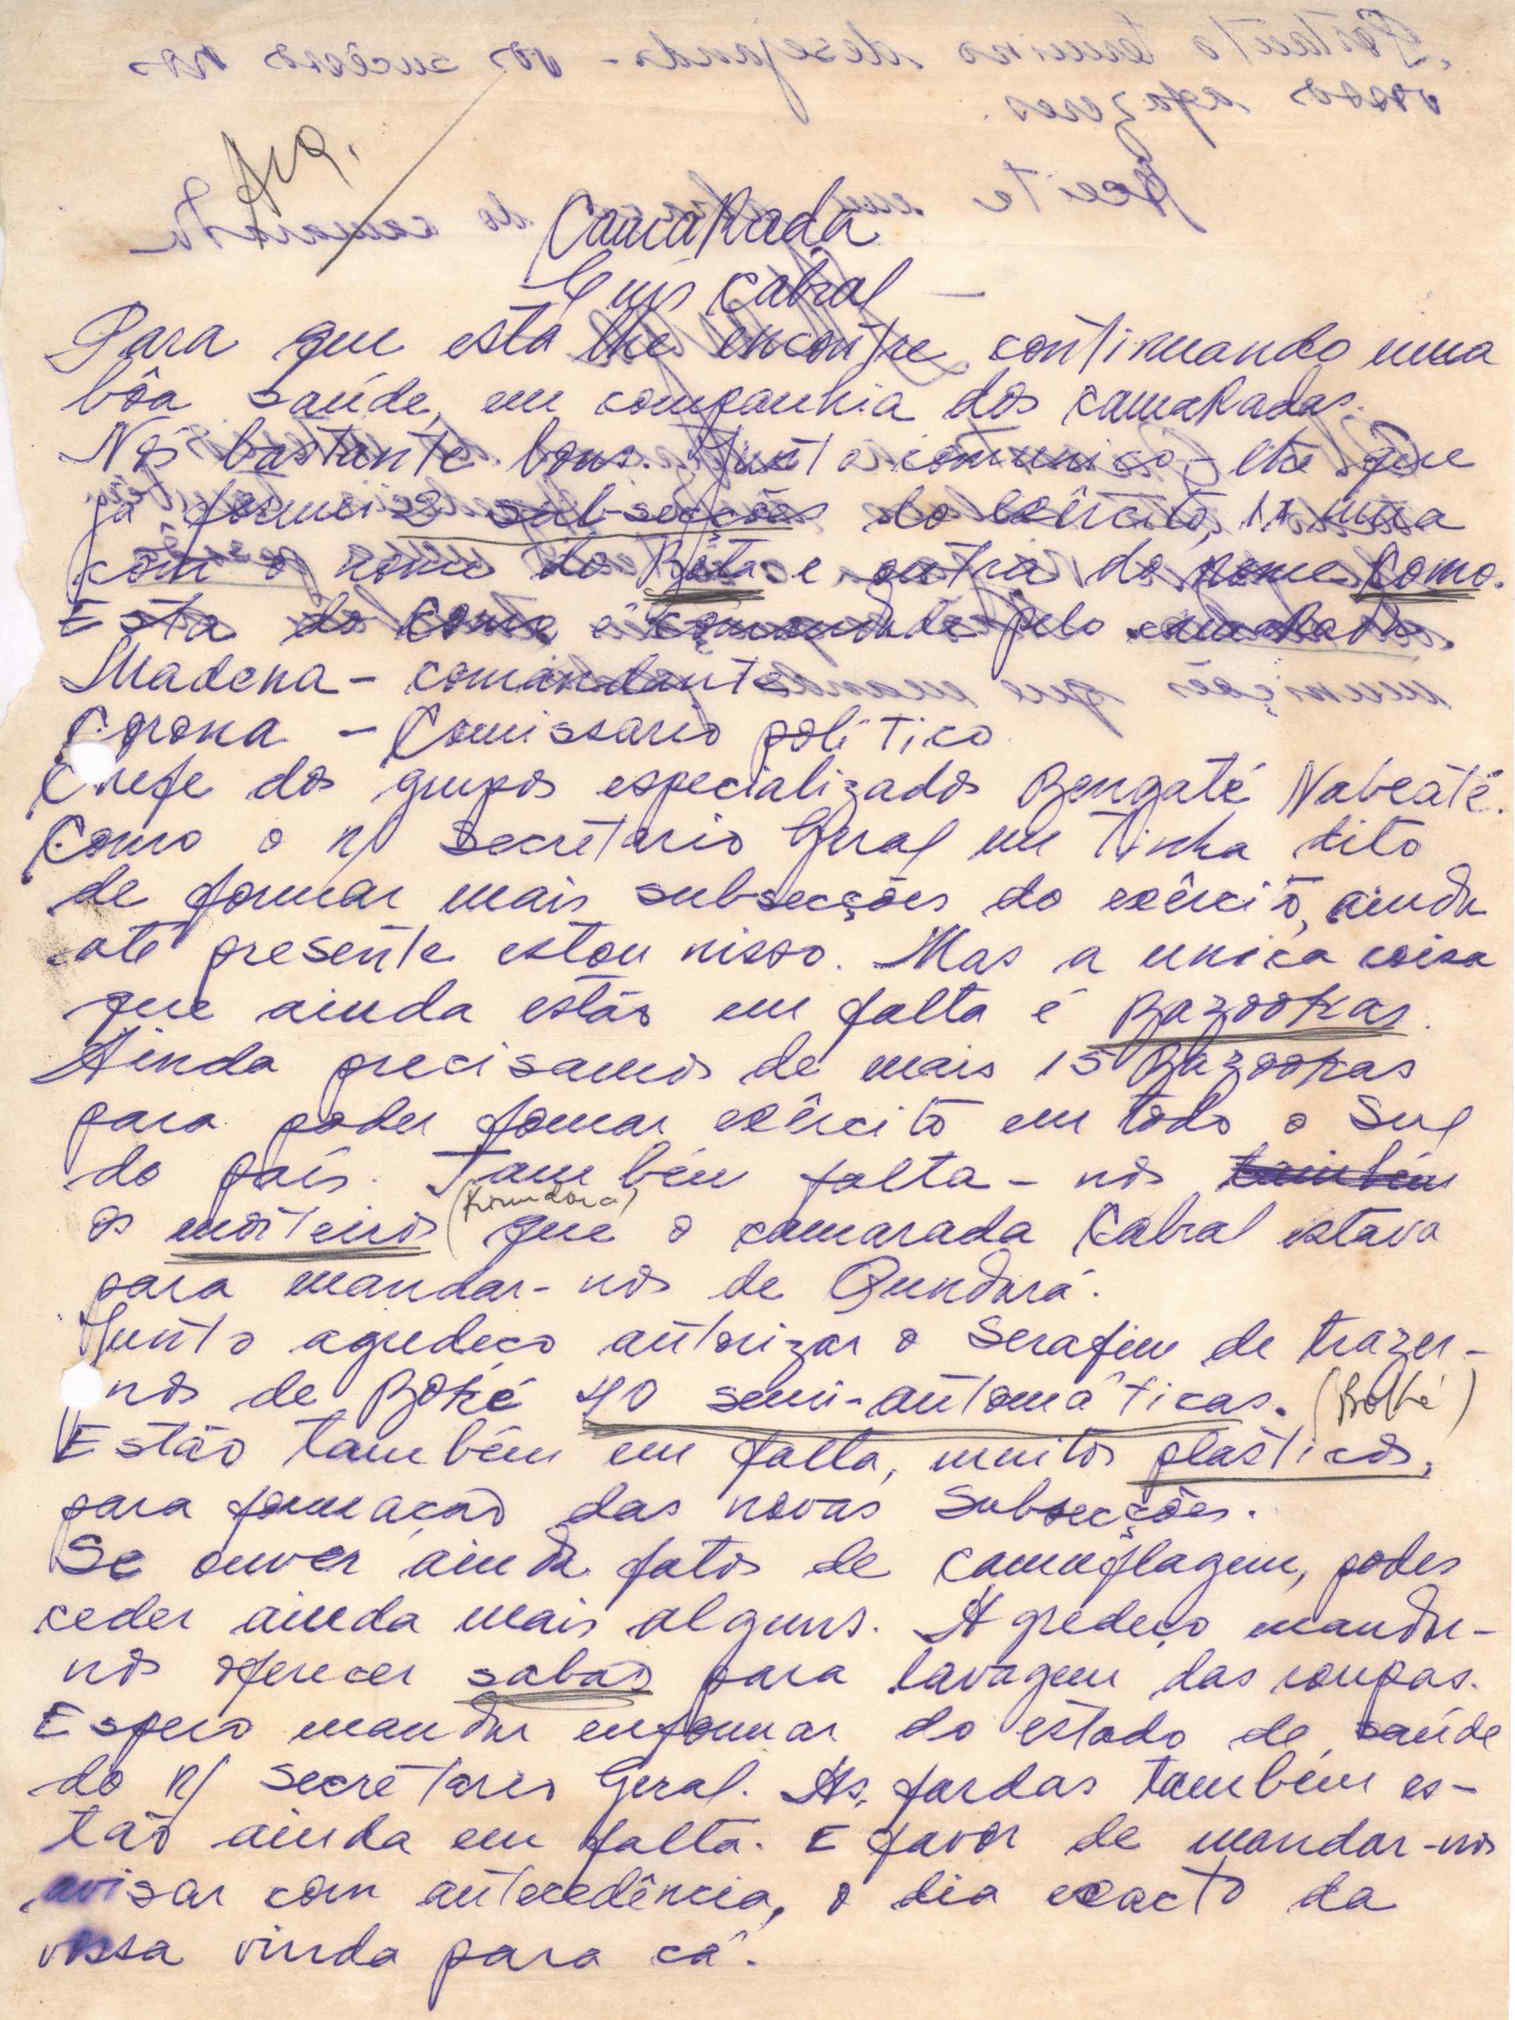 Arq.
CamaRada
Luis Cabral —
Para que esta lhe encontre continuando uma
bôa saúde, em companhia dos camaRadas.
Nós bastante bons. Junto comunico-lhe que
já formei 2 sub-secções do exêrcito, 1ª uma
com o nome do Bóta e outra do nome Como.
Esta do Como é comandade pelo camaRada.
Madena - comandante
Corona - Comissario politico
Chefe dos grupos especializados Bengaté Nabeáté.
Como o n/ Secretario Geral me tinha dito
de formar mais subsecções do exêrcito, ainda
até presente estou nisso. Mas a unica coisa
que ainda estás em falta é Bazookas.
Ainda precisamos de mais 15 Bazookas
para poder fomar exêrcito em todo o Sul
do país. Tambêm falta-nos também
(Koundara)
os morteiros que o camarada Cabral estava
para mandar-nos de Qundará.
Junto agredeço autorizar o Serafim de trazer-
nos de Boké 40 semi-automáticas. (Boké)
Estão tambêm em falta, muitos plasticos,
para formação das novas Subsecções.
Se ouver ainda fatos de camuflagem, podes
ceder ainda mais alguns. Agredeço mandar-
nos oferecer sabão para lavagem das roupas.
Espero mandar enformar do estado de saúde
do n/ Secretario Geral. As fardas tambêm es-
tão ainda em falta. E favor de mandar-nos
avisar com antecedência, o dia exacto da
vossa vinda para cá.